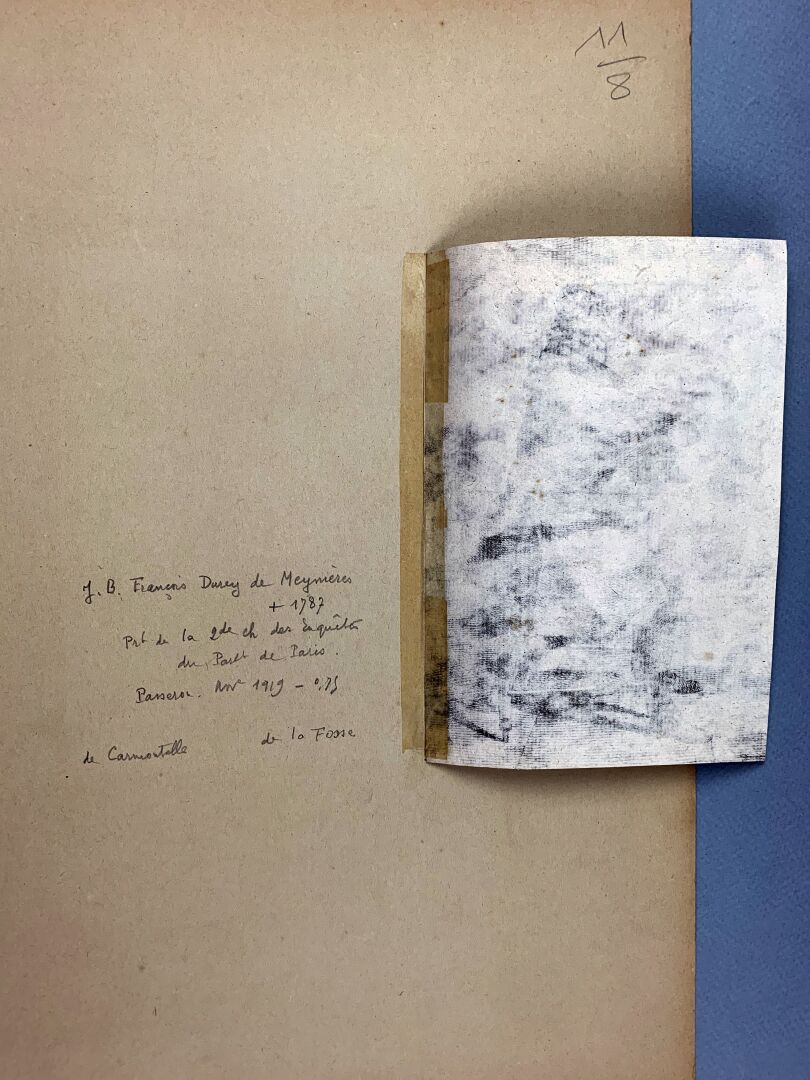 11
8
J. B. François Durey de Meynières
+ 1787
Prt de la 2de ch des Enquêtes
du Parlt de Paris.
Passeron. Nov 1919 - 0,75
de Carmontelle de la Fosse